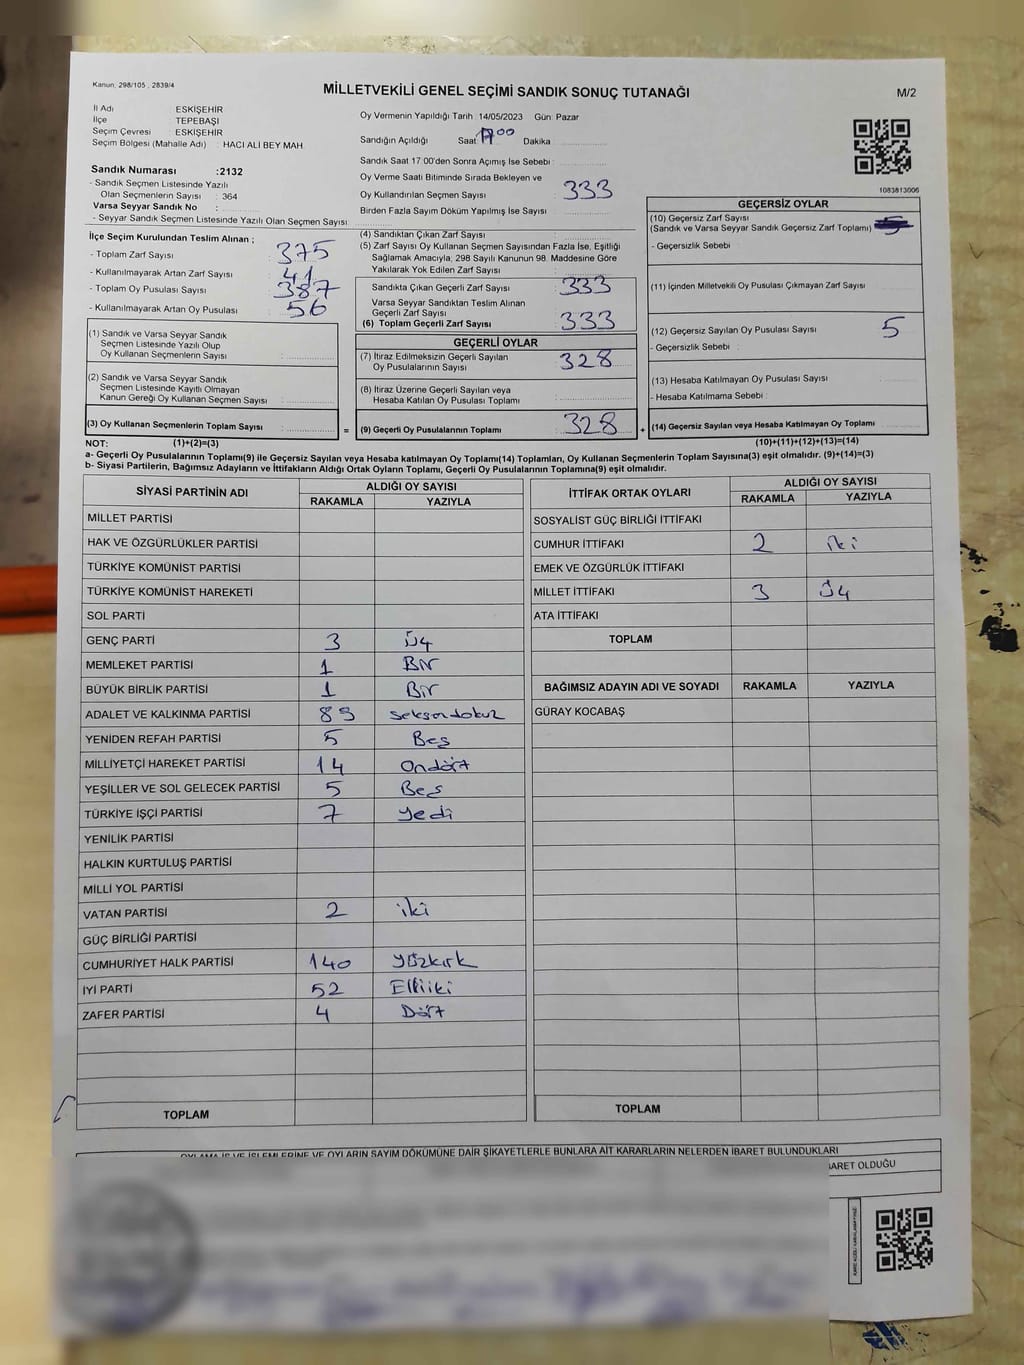 Kanun: 298/105 , 2839/4
MİLLETVEKİLİ GENEL SEÇİMİ SANDIK SONUÇ TUTANAĞI
M/2
İl Adı : ESKİŞEHİR
İlçe : TEPEBAŞI
Seçim Çevresi : ESKİŞEHİR
Seçim Bölgesi (Mahalle Adı) : HACI ALİ BEY MAH.
Sandık Numarası :2132
- Sandık Seçmen Listesinde Yazılı
Olan Seçmenlerin Sayısı : 364
Varsa Seyyar Sandık No :
- Seyyar Sandık Seçmen Listesinde Yazılı Olan Seçmen Sayısı:
Oy Vermenin Yapıldığı Tarih: 14/05/2023 Gün: Pazar
Sandığın Açıldığı Saat 17 00 Dakika
Sandık Saat 17.00'den Sonra Açımış İse Sebebi :
Oy Verme Saati Bitiminde Sırada Bekleyen ve
Oy Kullandırılan Seçmen Sayısı : 333
Birden Fazla Sayım Döküm Yapılmış İse Sayısı :
1083813006
İlçe Seçim Kurulundan Teslim Alınan ;
- Toplam Zarf Sayısı : 375
- Kullanılmayarak Artan Zarf Sayısı : 41
- Toplam Oy Pusulası Sayısı : 387
- Kullanılmayarak Artan Oy Pusulası : 56
(1) Sandık ve Varsa Seyyar Sandık
Seçmen Listesinde Yazılı Olup
Oy Kullanan Seçmenlerin Sayısı :
(2) Sandık ve Varsa Seyyar Sandık
Seçmen Listesinde Kayıtlı Olmayan
Kanun Gereği Oy Kullanan Seçmen Sayısı :
(3) Oy Kullanan Seçmenlerin Toplam Sayısı :
=
(4) Sandıktan Çıkan Zarf Sayısı :
(5) Zarf Sayısı Oy Kullanan Seçmen Sayısından Fazla İse, Eşitliği
Sağlamak Amacıyla, 298 Sayılı Kanunun 98. Maddesine Göre
Yakılarak Yok Edilen Zarf Sayısı :
Sandıkta Çıkan Geçerli Zarf Sayısı : 333
Varsa Seyyar Sandıktan Teslim Alınan
Geçerli Zarf Sayısı :
(6) Toplam Geçerli Zarf Sayısı : 333
GEÇERLİ OYLAR
(7) İtiraz Edilmeksizin Geçerli Sayılan
Oy Pusulalarının Sayısı : 328
(8) İtiraz Üzerine Geçerli Sayılan veya
Hesaba Katılan Oy Pusulası Toplamı :
(9) Geçerli Oy Pusulalarının Toplamı : 328
+
GEÇERSİZ OYLAR
(10) Geçersiz Zarf Sayısı
(Sandık ve Varsa Seyyar Sandık Geçersiz Zarf Toplamı) :
- Geçersizlik Sebebi :
(11) İçinden Milletvekili Oy Pusulası Çıkmayan Zarf Sayısı :
(12) Geçersiz Sayılan Oy Pusulası Sayısı : 5
- Geçersizlik Sebebi :
(13) Hesaba Katılmayan Oy Pusulası Sayısı :
- Hesaba Katılmama Sebebi :
(14) Geçersiz Sayılan veya Hesaba Katılmayan Oy Toplamı :
NOT: (1)+(2)=(3) (10)+(11)+(12)+(13)=(14)
a- Geçerli Oy Pusulalarının Toplamı(9) ile Geçersiz Sayılan veya Hesaba katılmayan Oy Toplamı(14) Toplamları, Oy Kullanan Seçmenlerin Toplam Sayısına(3) eşit olmalıdır. (9)+(14)=(3)
b- Siyasi Partilerin, Bağımsız Adayların ve İttifakların Aldığı Ortak Oyların Toplamı, Geçerli Oy Pusulalarının Toplamına(9) eşit olmalıdır.
SİYASİ PARTİNİN ADI ALDIĞI OY SAYISI
RAKAMLA YAZIYLA
MİLLET PARTİSİ
HAK VE ÖZGÜRLÜKLER PARTİSİ
TÜRKİYE KOMÜNİST PARTİSİ
TÜRKİYE KOMÜNİST HAREKETİ
SOL PARTİ
GENÇ PARTİ 3 Üç
MEMLEKET PARTİSİ 1 Bir
BÜYÜK BİRLİK PARTİSİ 1 Bir
ADALET VE KALKINMA PARTİSİ 89 seksendokuz
YENİDEN REFAH PARTİSİ 5 Beş
MİLLİYETÇİ HAREKET PARTİSİ 14 Ondört
YEŞİLLER VE SOL GELECEK PARTİSİ 5 Beş
TÜRKİYE İŞÇİ PARTİSİ 7 yedi
YENİLİK PARTİSİ
HALKIN KURTULUŞ PARTİSİ
MİLLİ YOL PARTİSİ
VATAN PARTİSİ 2 iki
GÜÇ BİRLİĞİ PARTİSİ
CUMHURİYET HALK PARTİSİ 140 yüzkırk
İYİ PARTİ 52 Elliiki
ZAFER PARTİSİ 4 Dört
TOPLAM
İTTİFAK ORTAK OYLARI ALDIĞI OY SAYISI
RAKAMLA YAZIYLA
SOSYALİST GÜÇ BİRLİĞİ İTTİFAKI
CUMHUR İTTİFAKI 2 iki
EMEK VE ÖZGÜRLÜK İTTİFAKI
MİLLET İTTİFAKI 3 Üç
ATA İTTİFAKI
TOPLAM
BAĞIMSIZ ADAYIN ADI VE SOYADI RAKAMLA YAZIYLA
GÜRAY KOCABAŞ
TOPLAM
OYLAMA İŞ VE İŞLEMLERİNE VE OYLARIN SAYIM DÖKÜMÜNE DAİR ŞİKAYETLERLE BUNLARA AİT KARARLARIN NELERDEN İBARET BULUNDUKLARI
İBARET OLDUĞU